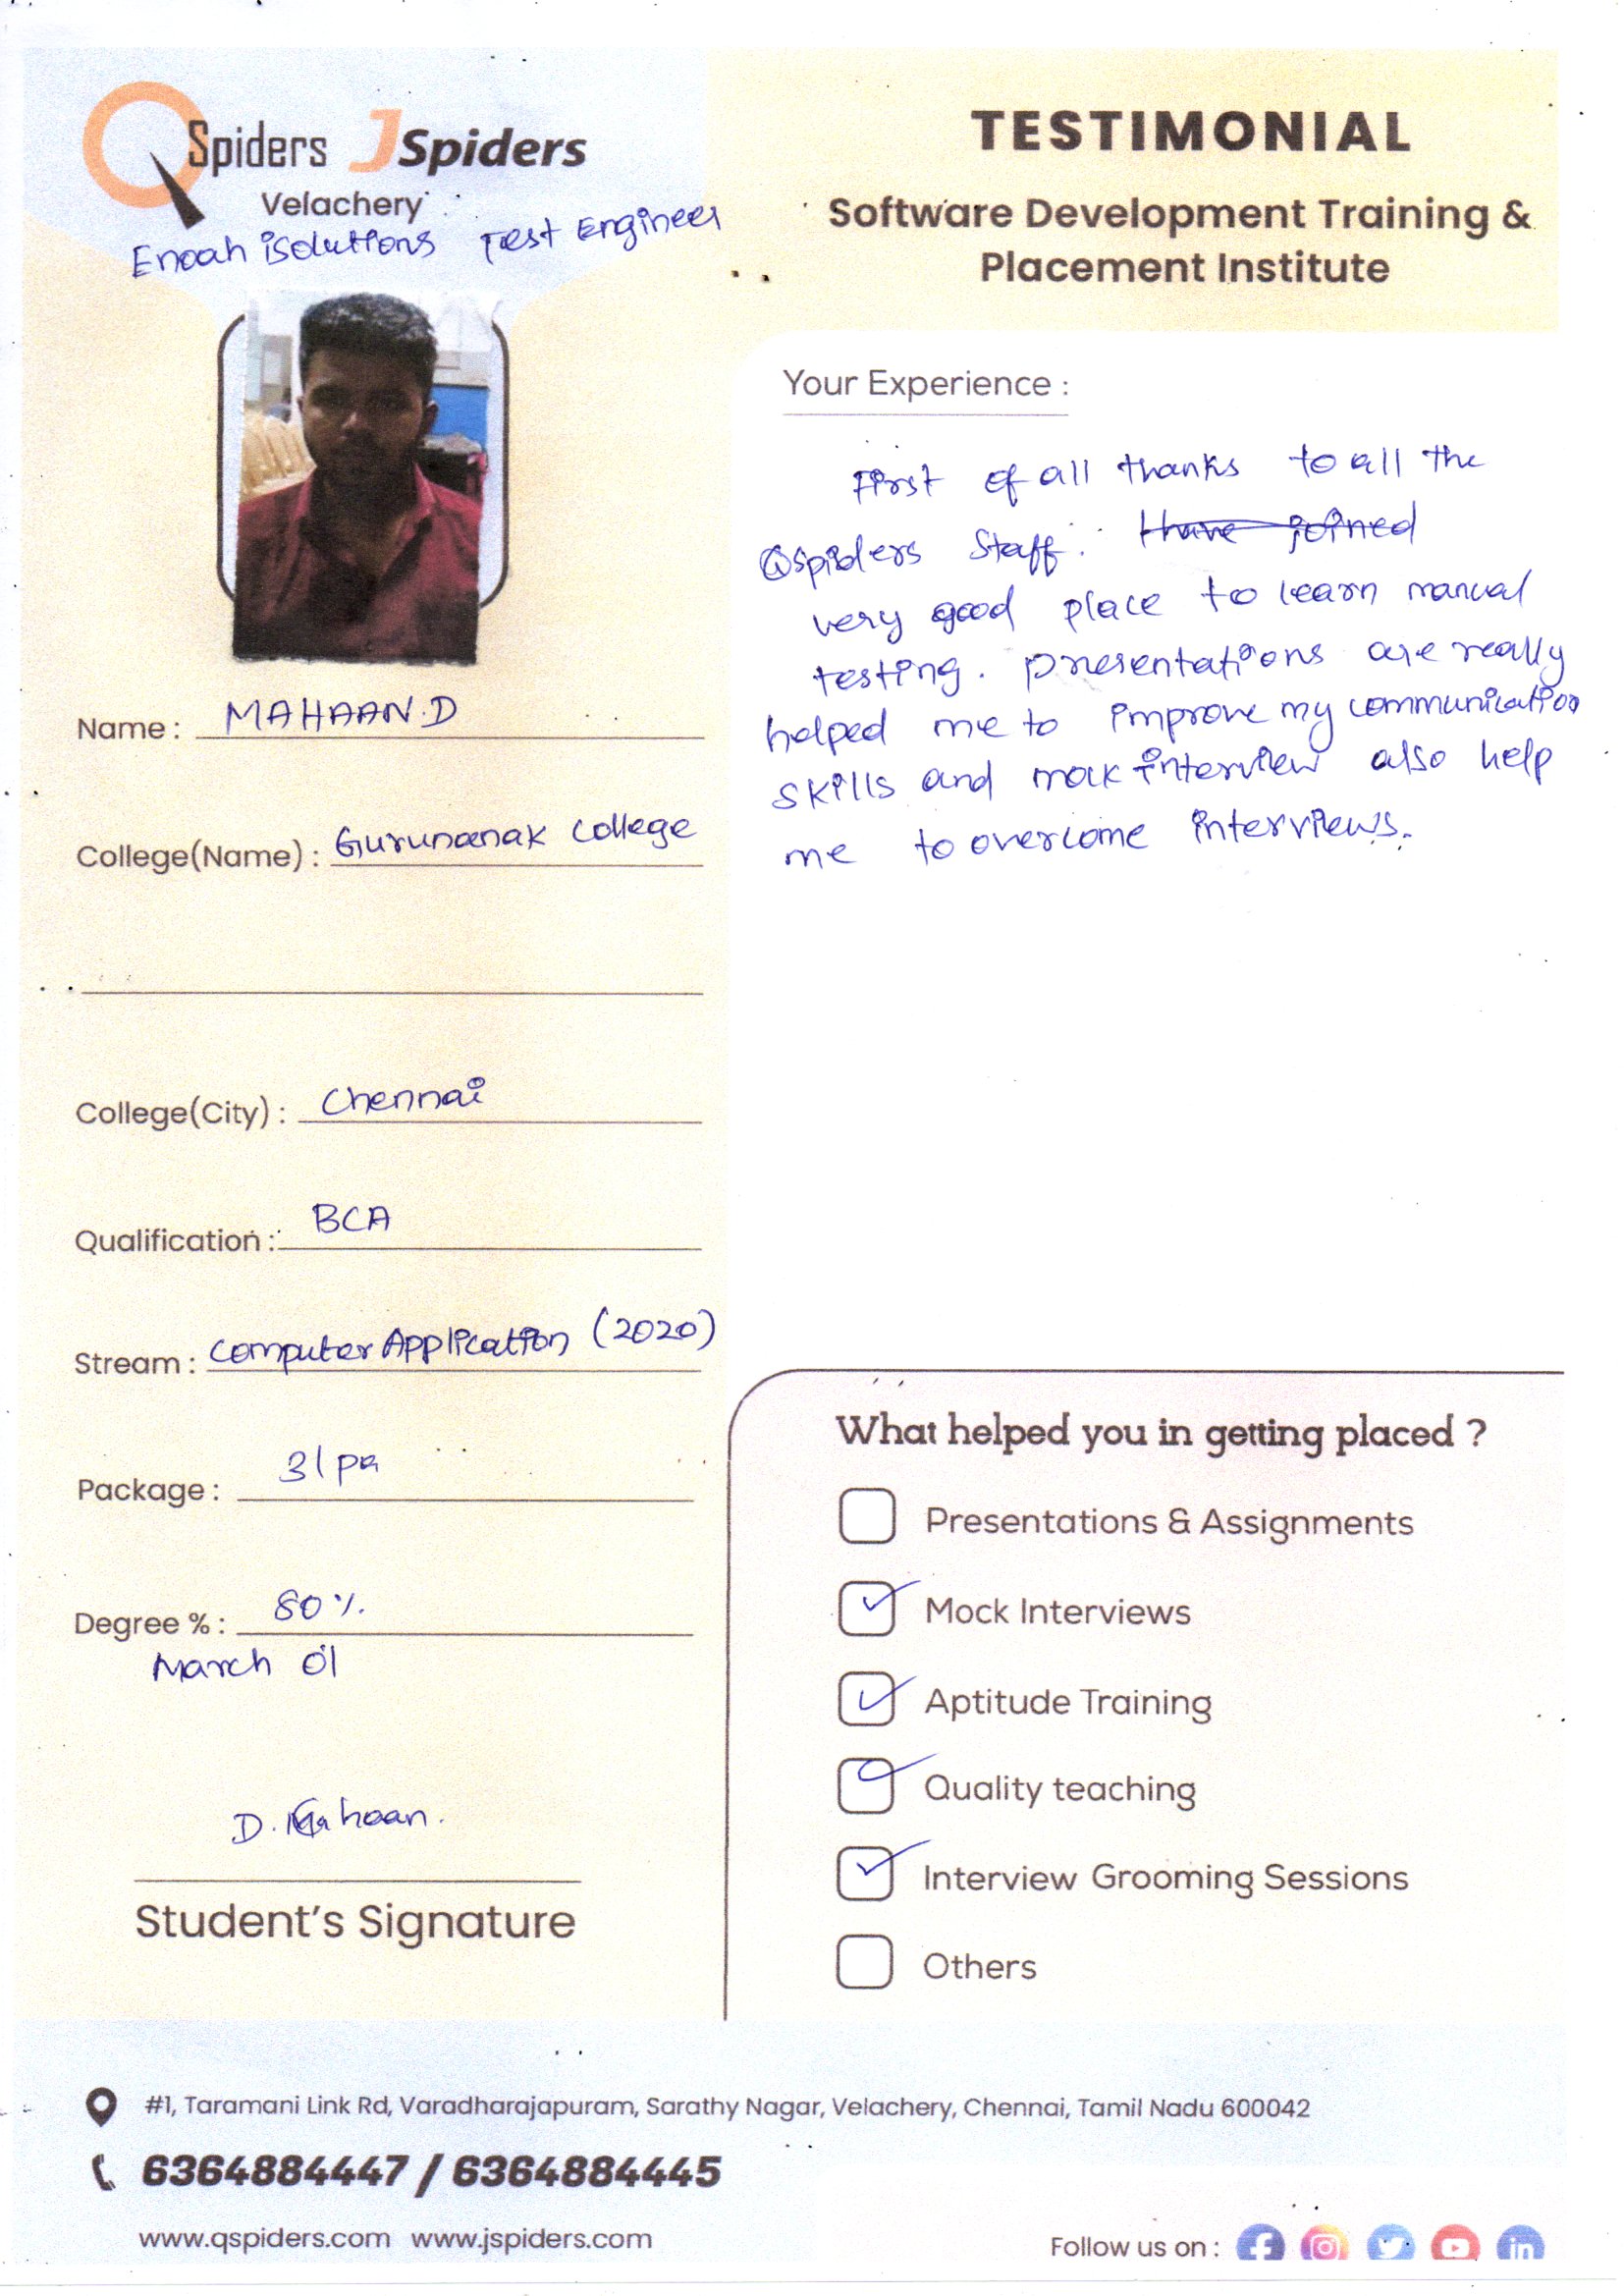 QSpiders JSpiders
Velachery
Enoah iSolutions Test Engineer
TESTIMONIAL
Software Development Training &
Placement Institute
Name : MAHAAN.D
College(Name) : Gurunanak College
College(City) : Chennai
Qualification : BCA
Stream : Computer Application (2020)
Package : 3lpa
Degree % : 80%
March 01
D. Mahaan.
Student's Signature
Your Experience :
First of all thanks to all the
Qspiders Staff. I have joined
very good place to learn manual
testing. presentations are really
helped me to improve my communication
skills and mock interview also help
me to overcome interviews.
What helped you in getting placed ?
Presentations & Assignments
Mock Interviews
Aptitude Training
Quality teaching
Interview Grooming Sessions
Others
#1, Taramani Link Rd, Varadharajapuram, Sarathy Nagar, Velachery, Chennai, Tamil Nadu 600042
6364884447 / 6364884445
www.qspiders.com www.jspiders.com
Follow us on :